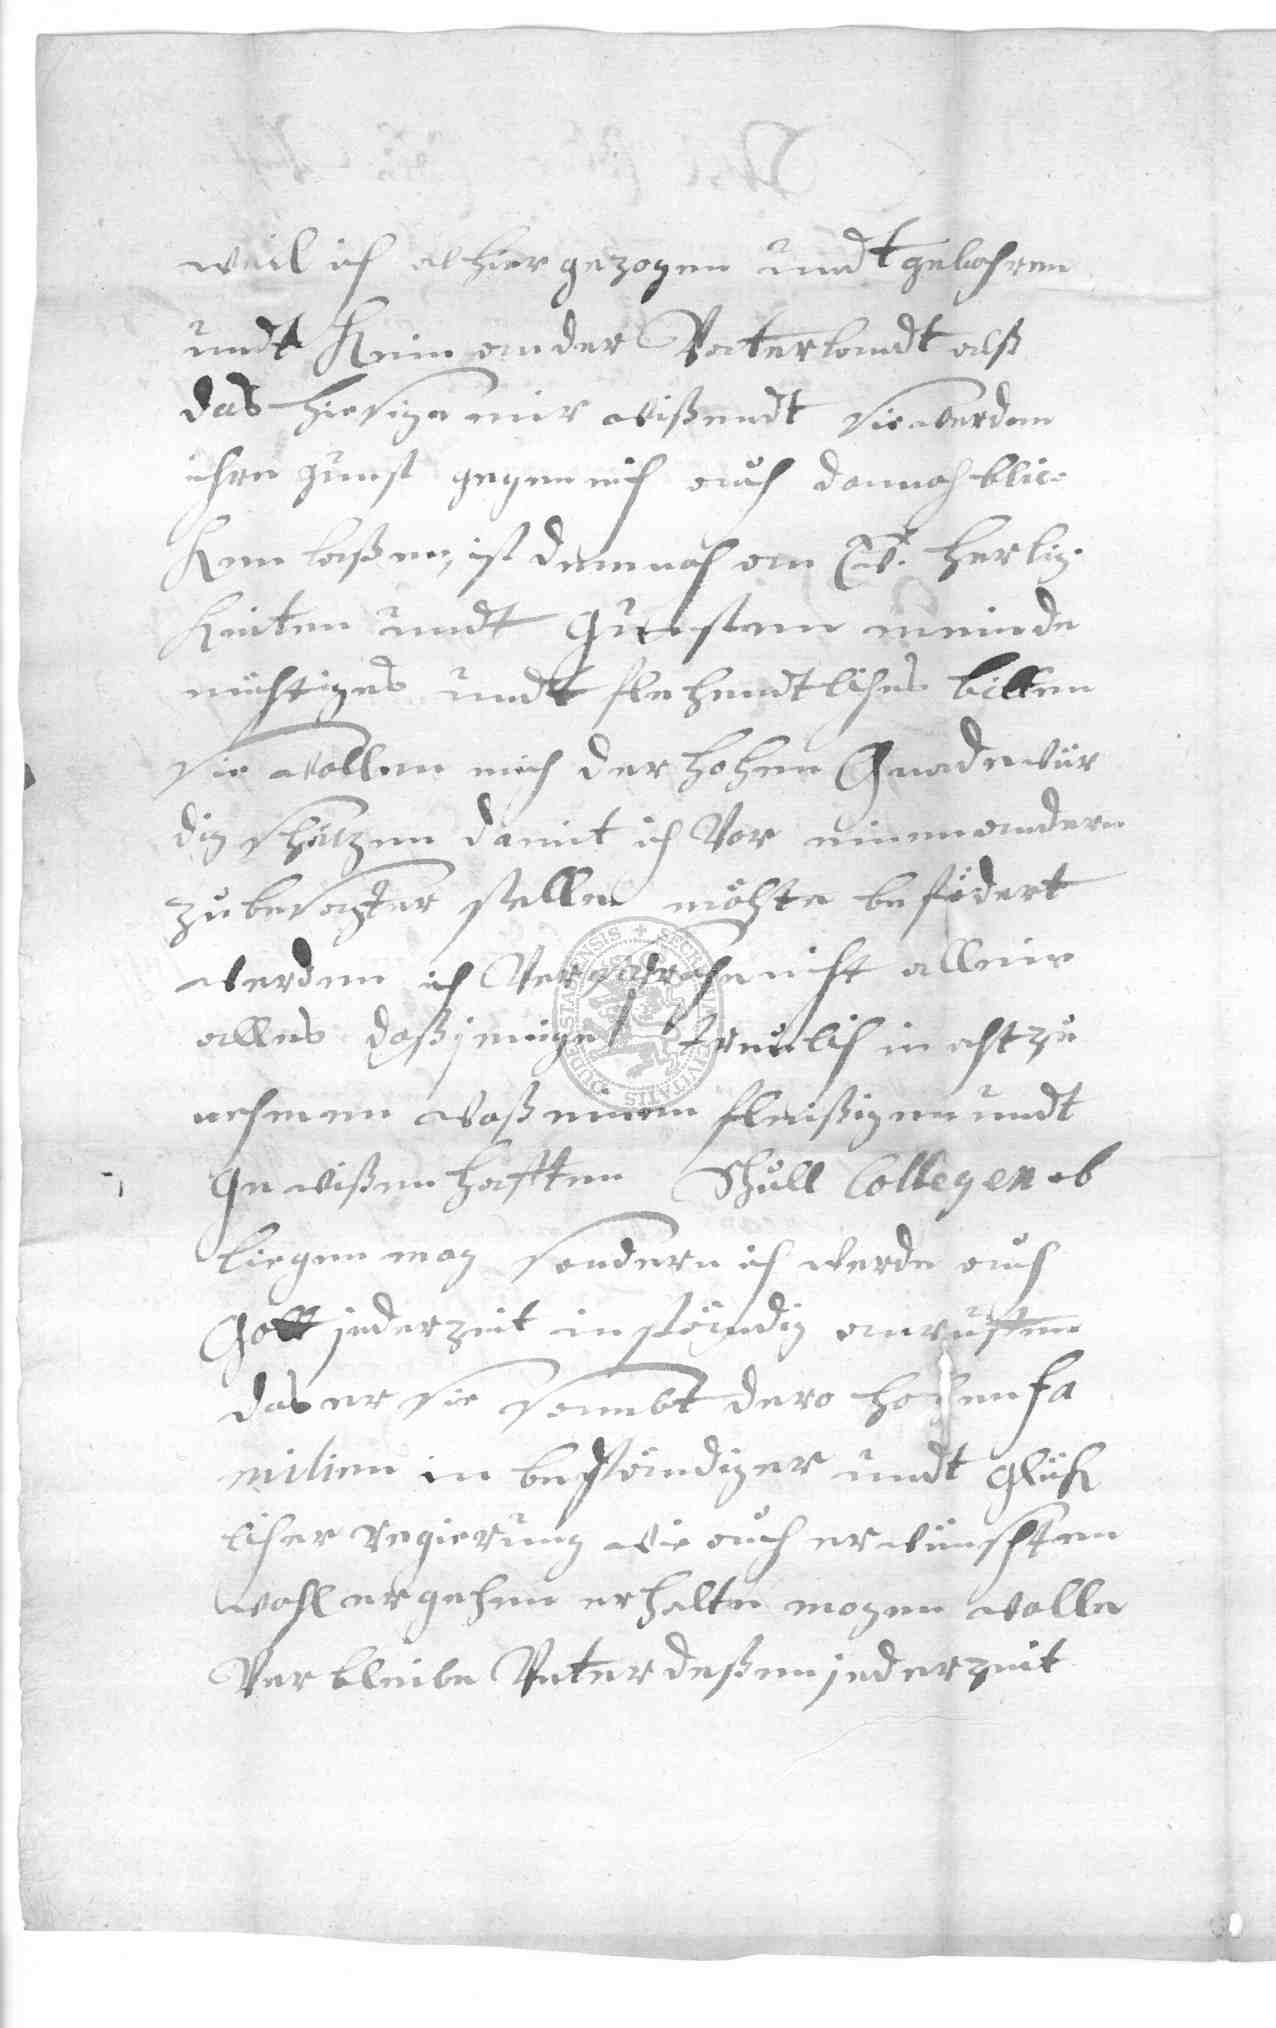 weil ich alhier gezogen undt gebohren
undt Kein ander Vaterlandt alß
das hiesige mir wißendt sie werden
ihre gunst gegen mich auch darnach blic
Ken laßen, ist demnach an Ew. Herlig
Keiten undt Gunsten mein de
mühtiges undt flehendtliches bitten
sie wollen mich der hohen Gnade wür
dig schätzen damit ich Vor einem andern
zu besagter stelle möchte befödert
werden ich Verspreche nicht allein
alles daßjenige Treulich in acht zu
nehmen waß einem fleißigen undt
Gewißenhafften Schull Collegen ob
liegen mag sondern ich werde auch
Gott jederzeit instöndig anruffen
das er sie sambt dero hohen fa
milien in bestöndiger undt glük
licher regierung wie auch erwünschten
wohlergehen erhalten mogen wolle
Verbleibe Unterdeßen jederzeit
SIGILLUM CIVITATIS BUDVICENSIS